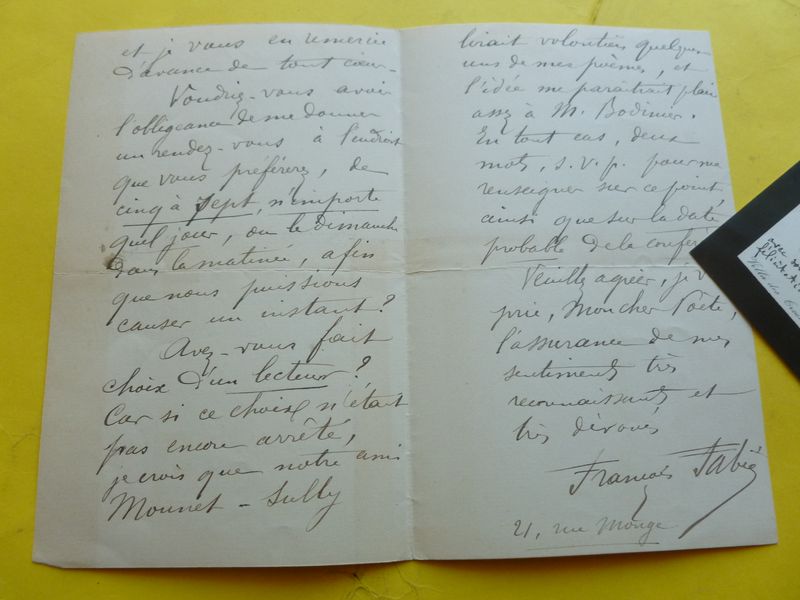 et je vous en remercie
d'avance de tout cœur -
Voudriez-vous avoir
l'obligeance de me donner
un rendez-vous à l'endroit
que vous préférerez, de
cinq à sept, n'importe
quel jour, ou le dimanche
dans la matinée, afin
que nous puissions
causer un instant?
Avez-vous fait
choix d'un lecteur?
Car si ce choix n'était
pas encore arrêté,
je crois que notre ami
Mounet-Sully
lirait volontiers quelques
uns de mes poèmes, et
l'idée me paraîtrait plaire
assez à M. Bodinier.
En tout cas, deux
mots, s.v.p. pour me
renseigner sur ce point
ainsi que sur la date
probable de la confér
Veuillez agréer, je v
prie, Mon cher Poète,
l'assurance de mes
sentiments très
reconnaissants et
très dévoués
François Fabié
21, rue Monge
avec